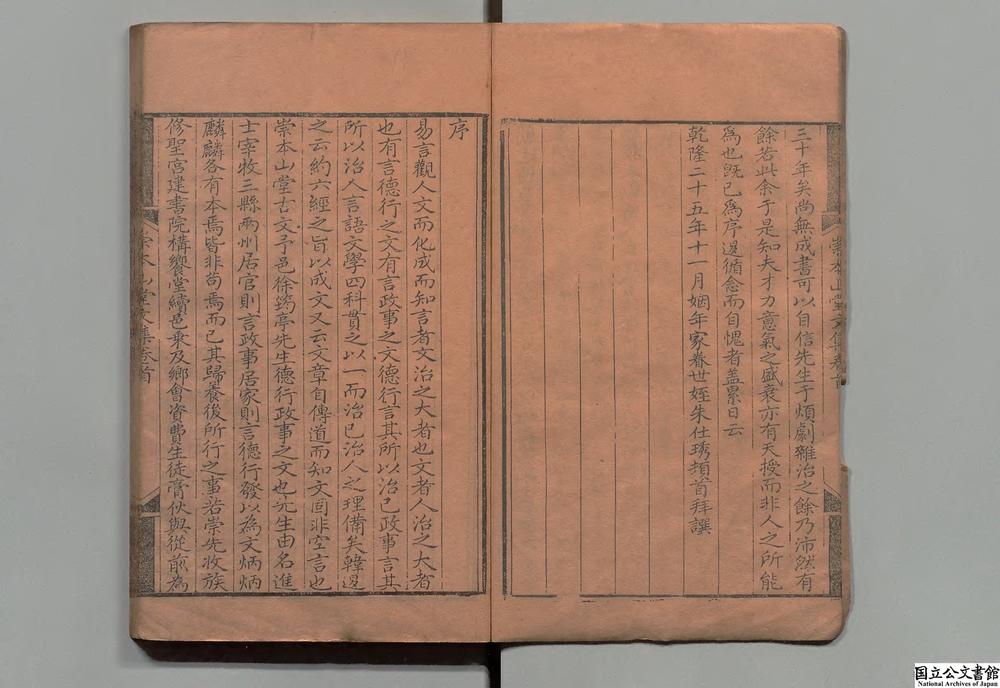 三十年矣尚無成書可以自信先生于煩劇雜治之餘乃沛然有
餘若此余于是知夫才力意氣之盛衰亦有天授而非人之所能
爲也既已爲序逡循念而自愧者盖累日云
乾隆二十五年十一月姻年家眷世姪朱仕琇頓首拜譔
序
易言觀人文而化成而知言者文治之大者也文者人治之大者
也有言德行之文有言政事之文德行言其所以治已政事言其
所以治人言語文學四科貫之以一而治已治人之理備矣韓退
之云約六經之旨以成文又云文章自傳道而知文固非空言也
崇本山堂古文予邑徐筠亭先生德行政事之文也先生由名進
士宰牧三縣兩州居官則言政事居家則言德行發以為文炳炳
麟麟各有本焉皆非苟焉而已其歸養後所行之事若崇先收族
修聖宮建書院構饗堂續邑乗及鄉會資費生徒膏伙與從前為
崇本山堂文集卷首
国立公文書館
National Archives of Japan